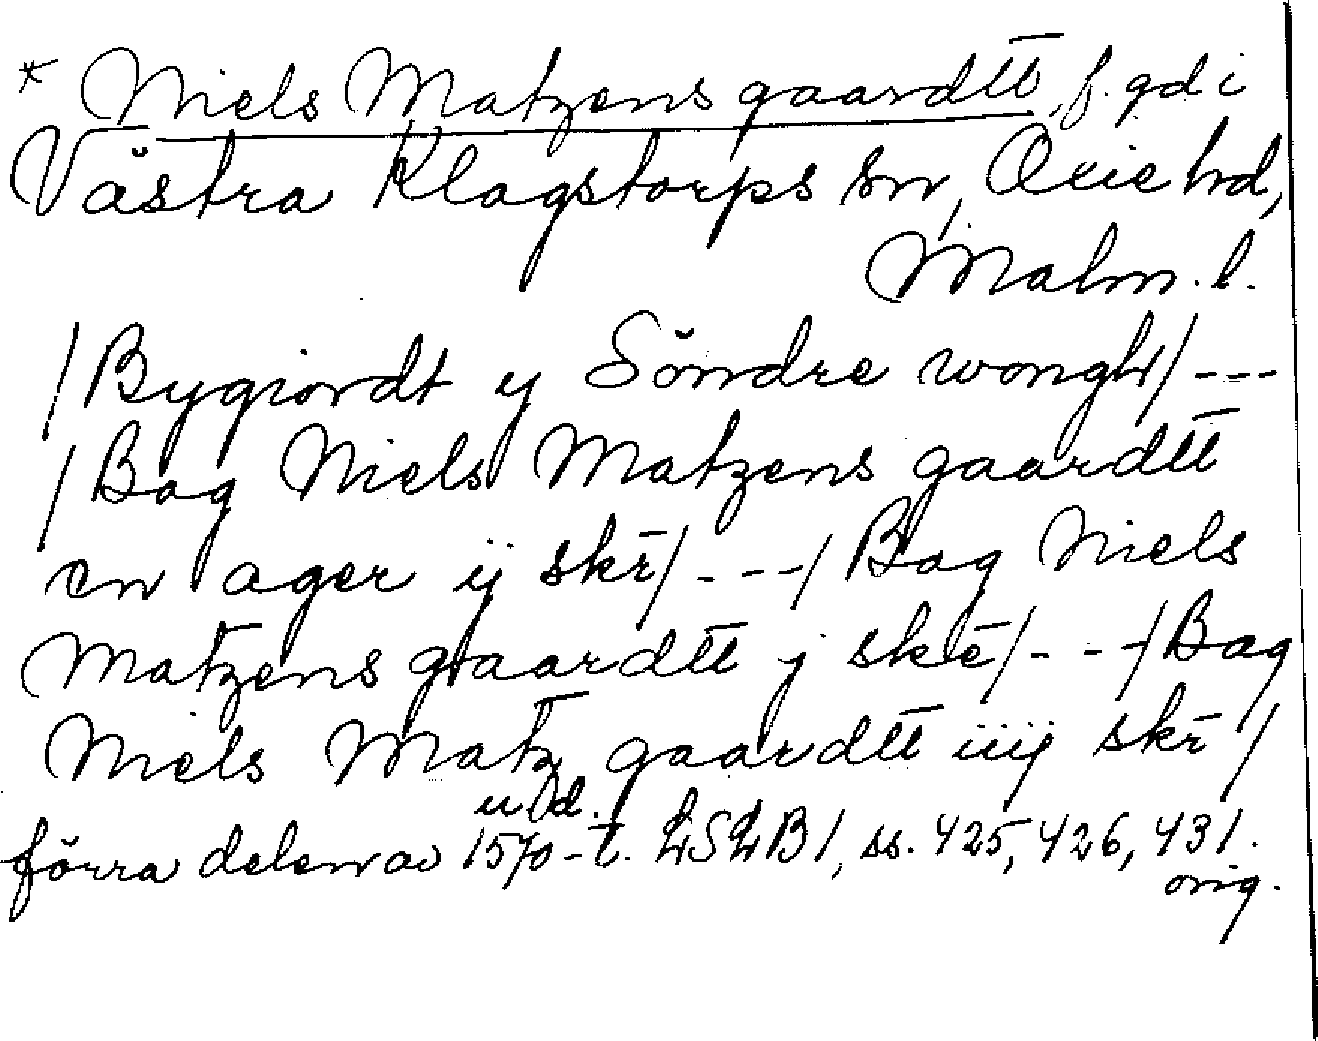 * Niels Matzens gaardtt, f. gd i
Västra Klagstorps sn, Oxie hd,
Malm. l.
/Bygiordt y Söndre wongh/---
/Bag Niels Matzens gaardtt
en ager ij skr̄/---/Bag Niels
Matzens gaardtt j skr̄/---/Bag
Niels Matz gaardtt iiij skr̄/
u. d.
förra delen av 1570-t. LSLB 1, ss. 425, 426, 431.
orig.